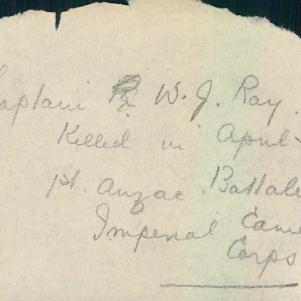 Captain W. J. Ray.
Killed in April
1st. Anzac Battale
Imperial Came
Corps